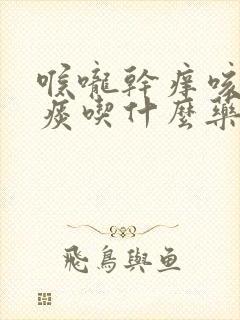 喉嚨幹癢咳
痰喫什麼藥
飛鳥與魚